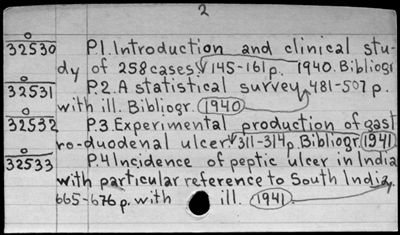 2
0
32530 P1. Introduction and clinical stu-
dy of 258 cases. 145-161 p. 1940. Bibliogr
0
32531 P2. A statistical survey, 481-507 p.
with ill. Bibliogr. 1940
0
32532 P.3. Experimental production of gast
ro-duodenal ulcer 311-314 p. Bibliogr. 1941
0
32533 P.4 Incidence of peptic ulcer in India
with particular reference to South India,
665-676 p. with ill. 1941